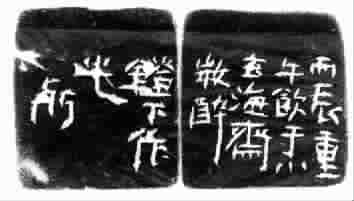 丙辰重
午飲于小
玄海齋
醉
鐙下作
此